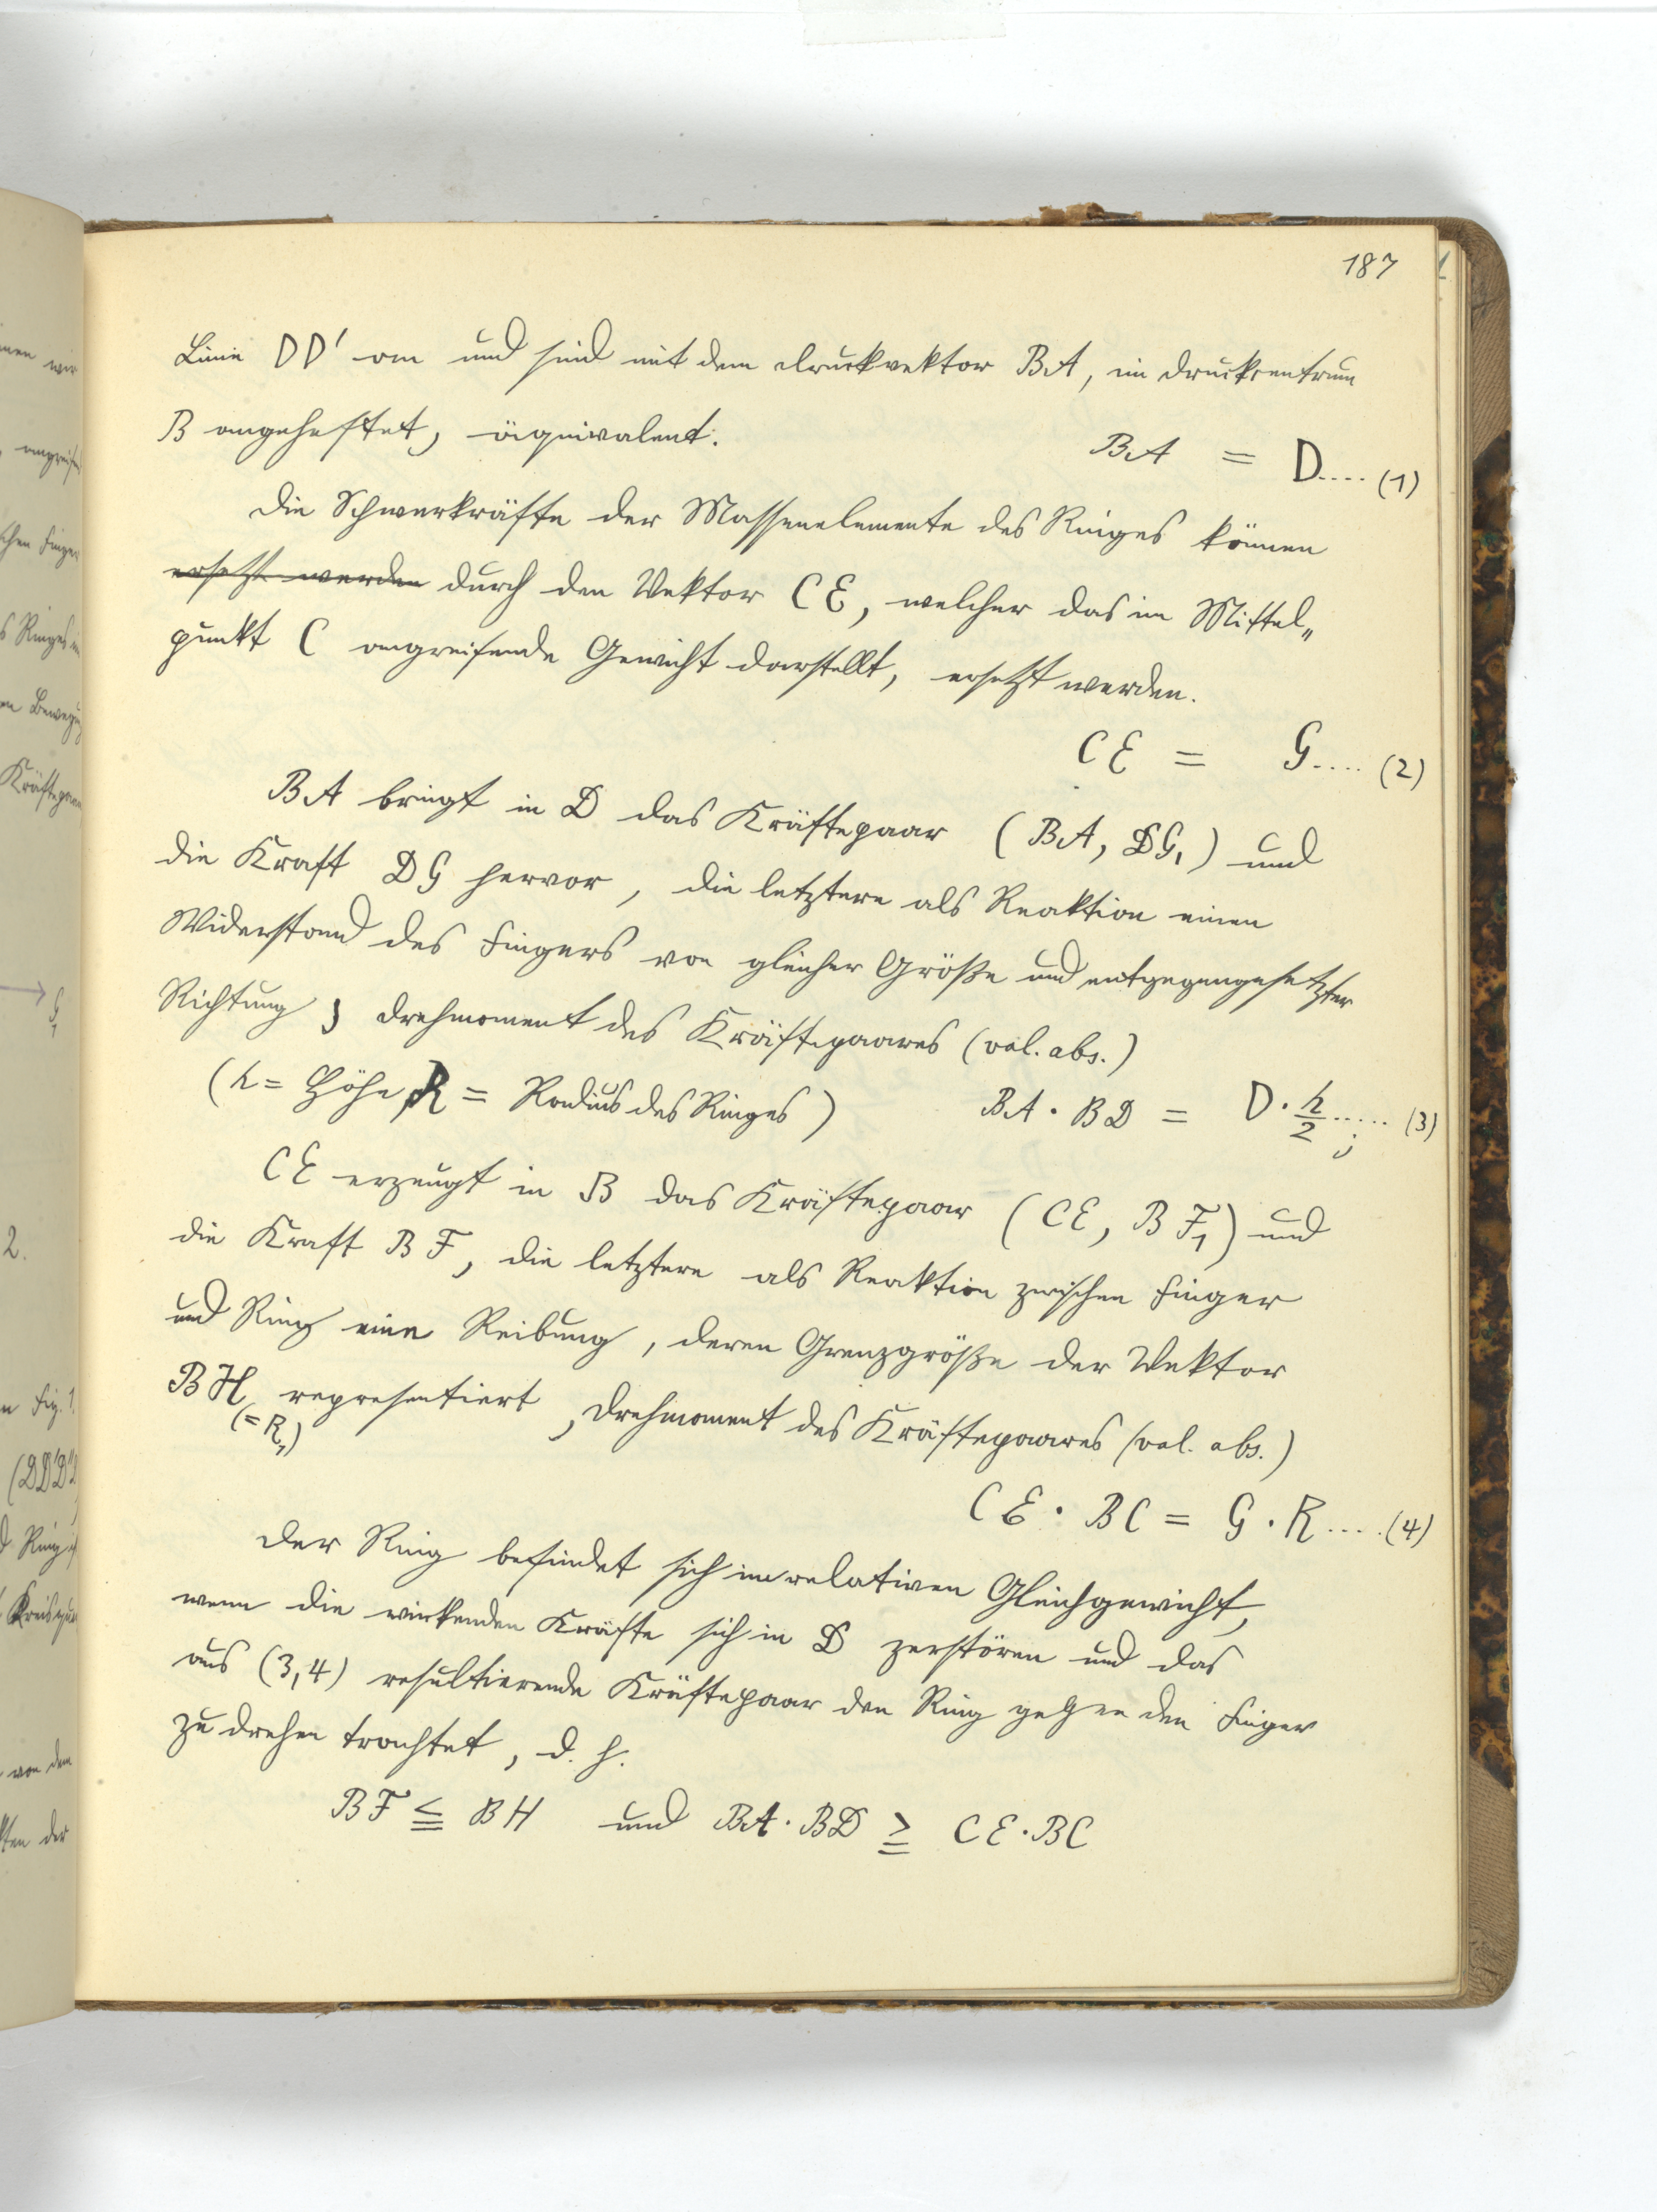 187
Linie DD' an und sind mit dem Druckvektor BA, im Druckzentrum
B angeheftet, äquivalent.
BA = D.... (1)
Die Schwerkräfte der Massenelemente des Ringes können
ersetzt werden durch den Vektor CE, welcher das im Mittel„
punkt C angreifende Gewicht darstellt, ersetzt werden.
CE = G.... (2)
BA bringt in D das Kräftepaar (BA, DG₁) und
die Kraft DG hervor, die letztere als Reaktion einen
Widerstand des Fingers von gleicher Größe und entgegengesetzter
Richtung; Drehmoment des Kräftepaares (val. abs.)
(h = Höhe, R = Radius des Ringes)
BA · BD = D · h/2 ..... (3)
;
CE erzeugt in B das Kräftepaar (CE, BF₁) und
die Kraft BF, die letztere als Reaktion zwischen Finger
und Ring eine Reibung, deren Grenzgröße der Vektor
BH representiert, Drehmoment des Kräftepaares (val. abs.)
(= R₁)
CE · BC = G · R .... (4)
Der Ring befindet sich im relativen Gleichgewicht,
wenn die wirkenden Kräfte sich in D zerstören und das
aus (3,4) resultierende Kräftepaar den Ring gegen den Finger
zu drehen trachtet, d. h.
BF ≦ BH und BA · BD ≧ CE · BC